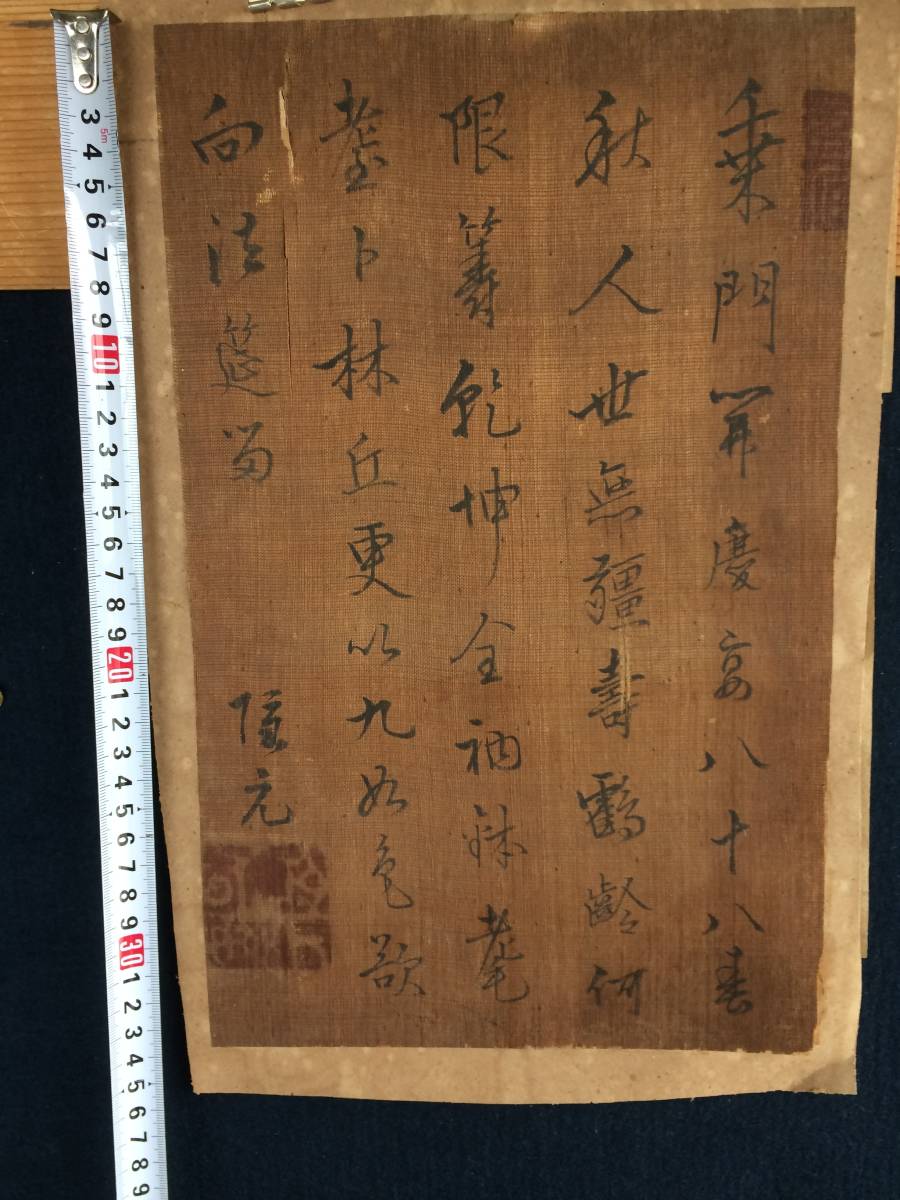 桑門開慶宴八十八春
秋人世無疆壽鶴齡何
限籌乾坤全衲鉢耄
耋卜林丘更以九如歌
向法筵留
隱元
5m
3 4 5 6 7 8 9 10 1 2 3 4 5 6 7 8 9 20 1 2 3 4 5 6 7 8 9 30 1 2 3 4 5 6 7 8 9